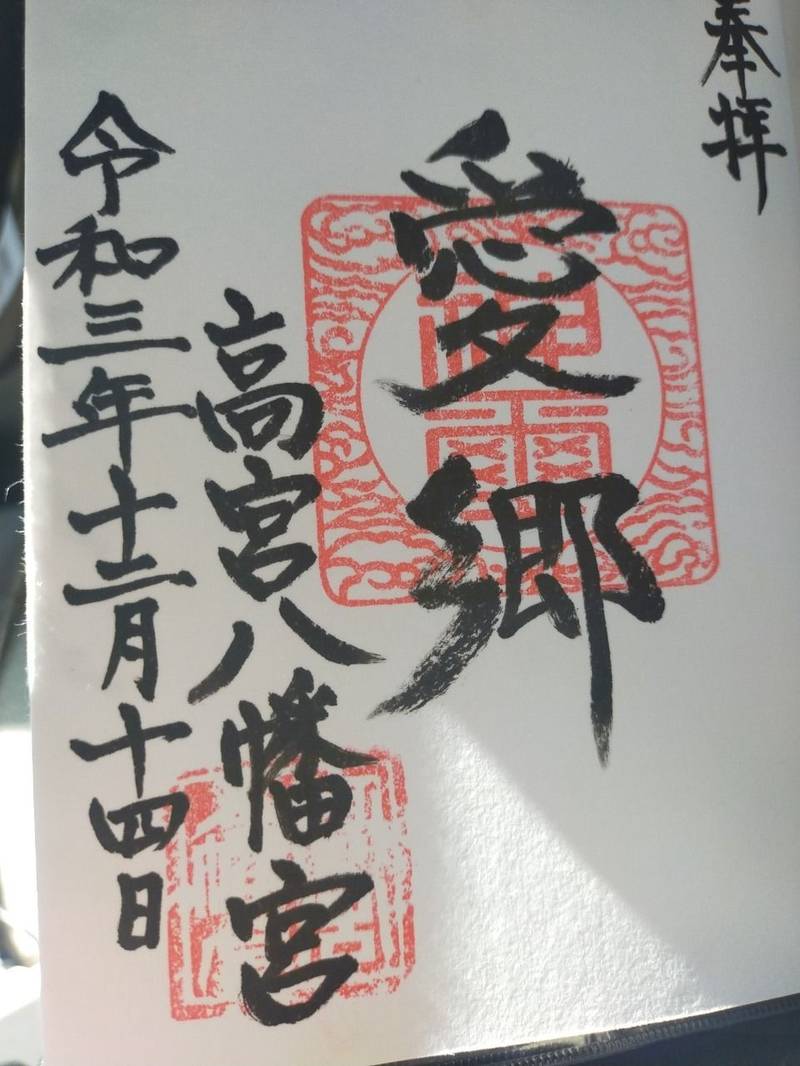 奉拝
愛郷
高宮八幡宮
令和三年十二月十四日